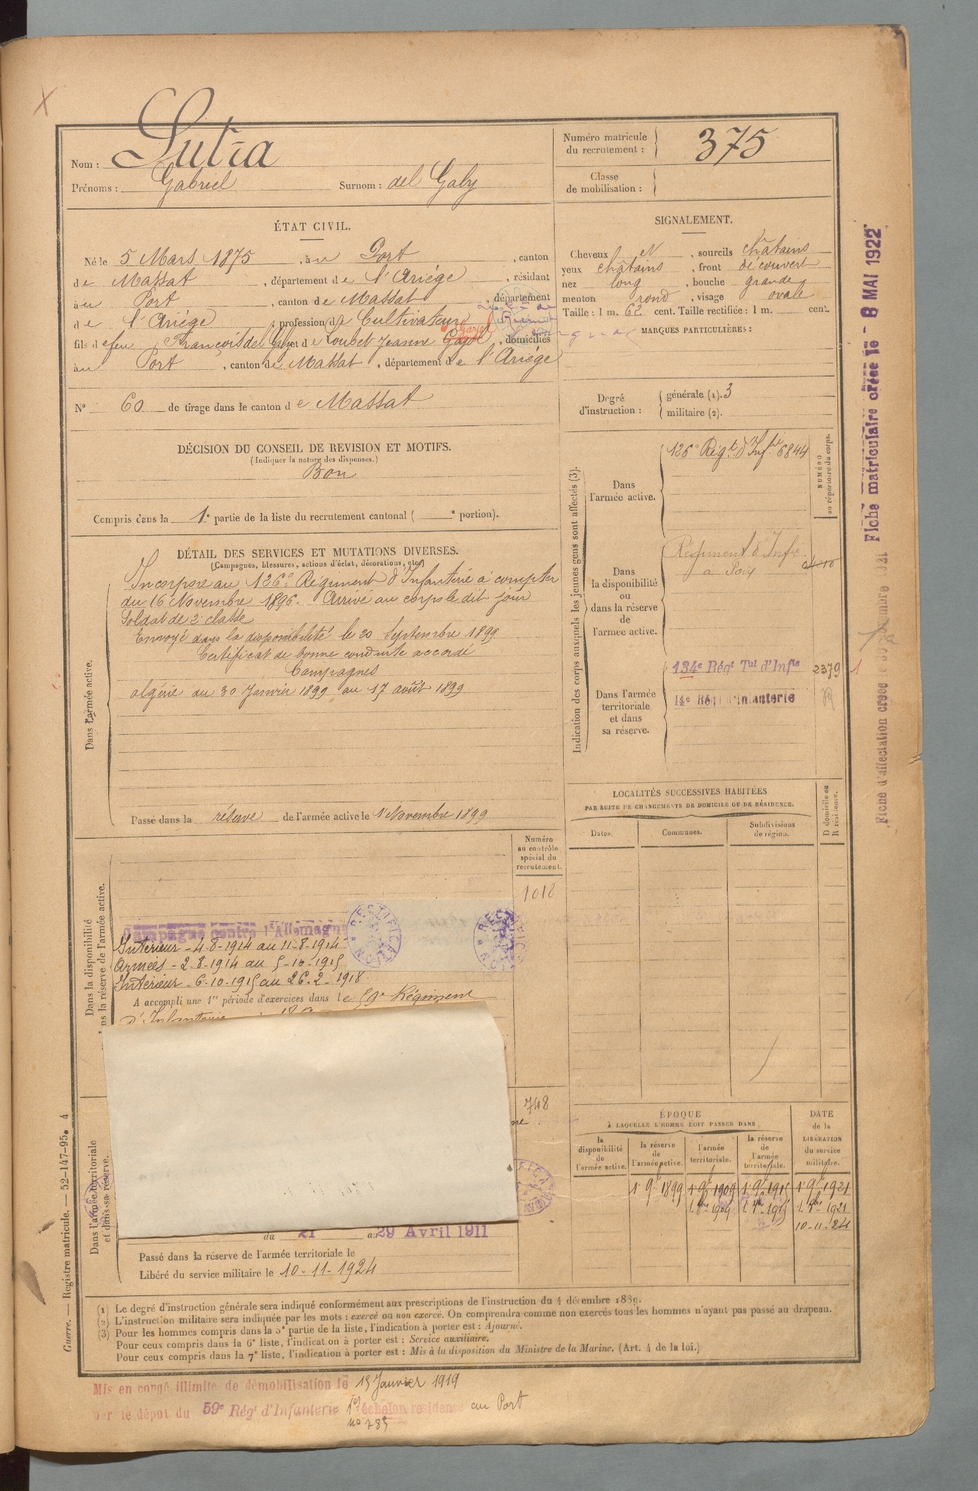 X
Nom : Lutra
Prénoms : Gabriel Surnom : del Gaby
Numéro matricule du recrutement : 375
Classe de mobilisation :
ÉTAT CIVIL.
Né le 5 Mars 1875, à Port, canton
de Massat, département de l'Ariége, résidant
à Port, canton de Massat, département
de l'Ariége, profession de Cultivateur
fils de feu François del Gaby et de Loubet Jeanne, domiciliés
à Port, canton de Massat, département de l'Ariége
N° 60 de tirage dans le canton de Massat
SIGNALEMENT.
Cheveux et, sourcils châtains
yeux châtains, front découvert
nez long, bouche grande
menton rond, visage ovale
Taille : 1 m. 62 cent. Taille rectifiée : 1 m. cent.
MARQUES PARTICULIÈRES :
Degré d'instruction : générale (1). 3
militaire (2).
DÉCISION DU CONSEIL DE REVISION ET MOTIFS.
(Indiquer la nature des dispenses.)
Bon
Compris dans la 1e partie de la liste du recrutement cantonal ( e portion).
DÉTAIL DES SERVICES ET MUTATIONS DIVERSES.
(Campagnes, blessures, actions d'éclat, décorations, etc.)
Dans l'armée active.
Incorporé au 126e Régiment d'Infanterie à compter
du 16 Novembre 1896. Arrivé au corps le dit jour
Soldat de 2e classe
Envoyé dans la disponibilité le 20 Septembre 1899
Certificat de bonne conduite accordé
Campagnes
algérie du 30 Janvier 1899 au 17 août 1899
Passé dans la réserve de l'armée active le 1 Novembre 1899
Indication des corps auxquels les jeunes gens sont affectés (3).
NUMÉRO au répertoire du corps.
Dans l'armée active.
126e Régt d'Infie 6844
Dans la disponibilité ou dans la réserve de l'armée active.
Régiment d'Infie
Dans l'armée territoriale et dans sa réserve.
134e Régt Tal d'Infie 2379
14e Régt d'Infanterie
LOCALITÉS SUCCESSIVES HABITÉES
PAR SUITE DE CHANGEMENTS DE DOMICILE OU DE RÉSIDENCE.
Dates. Communes. Subdivisions de région. D domicile ou R résidence.
Numéro au contrôle spécial du recrutement.
1018
Dans la disponibilité ou dans la réserve de l'armée active.
Campagne contre l'Allemagne
RECTIFICATION
RECTIFICATION
Intérieur - 4-8-1914 au 11-8-1914
Armées - 2-8-1914 au 5-10-1915
Intérieur - 6-10-1915 au 26-2-1918
A accompli une 1re période d'exercices dans le 59e Régiment
d'Infanterie
748
Dans l'armée territoriale et dans sa réserve.
du 21 au 29 Avril 1911
Passé dans la réserve de l'armée territoriale le
Libéré du service militaire le 10-11-1924
ÉPOQUE
À LAQUELLE L'HOMME DOIT PASSER DANS
la disponibilité de l'armée active. la réserve de l'armée active. l'armée territoriale. la réserve de l'armée territoriale.
DATE de la LIBÉRATION du service militaire.
1 9bre 1899 1 9bre 1909 1 9bre 1915 1 9bre 1921
10-11-24
(1) Le degré d'instruction générale sera indiqué conformément aux prescriptions de l'instruction du 4 décembre 1889.
(2) L'instruction militaire sera indiquée par les mots : exercé ou non exercé. On comprendra comme non exercés tous les hommes n'ayant pas passé au drapeau.
(3) Pour les hommes compris dans la 5e partie de la liste, l'indication à porter est : Ajourné.
Pour ceux compris dans la 6e liste, l'indication à porter est : Service auxiliaire.
Pour ceux compris dans la 7e liste, l'indication à porter est : Mis à la disposition du Ministre de la Marine. (Art. 4 de la loi.)
Mis en congé illimité de démobilisation le 15 Janvier 1919
par le dépôt du 59e Régt d'Infanterie 1er échelon résidence au Port
no 285
Guerre. — Registre matricule. — 52-147-95. 4
Fiche matriculaire créée le - 8 MAI 1922
Fiche d'affectation créée le